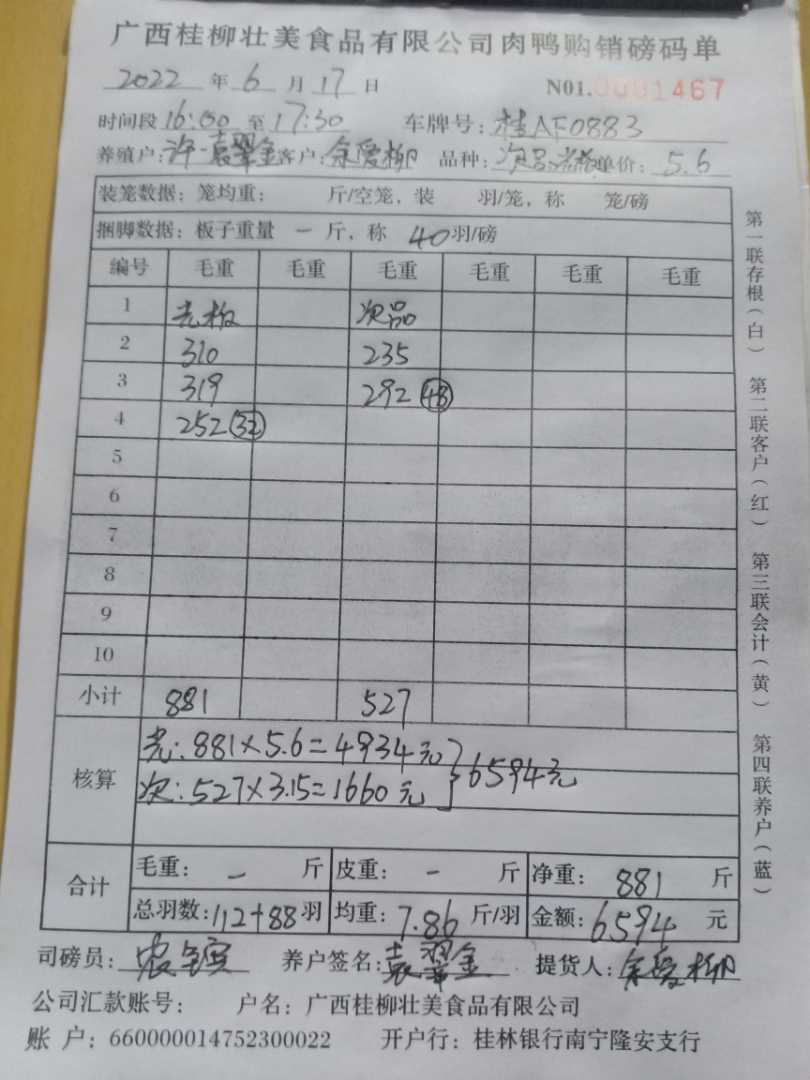 广西桂柳壮美食品有限公司肉鸭购销磅码单
2022 年 6 月 17 日 N01.0001467
时间段 16:00 至 17:30 车牌号: 桂AF0883
养殖户: 许-袁翠金 客户: 余爱柳 品种: 次品、光板 单价: 5.6
装笼数据: 笼均重: 斤/空笼, 装 羽/笼, 称 笼/磅
捆脚数据: 板子重量 一 斤, 称 40 羽/磅
编号 毛重 毛重 毛重 毛重 毛重 毛重
1 光板 次品
2 310 235
3 319 292 48
4 252 32
5
6
7
8
9
10
小计 881 527
核算
光: 881×5.6=4934元
次: 527×3.15=1660元
}6594元
合计
毛重: - 斤 皮重: - 斤 净重: 881 斤
总羽数: 112+88 羽 均重: 7.86 斤/羽 金额: 6594 元
司磅员: 养户签名: 袁翠金 提货人: 余爱柳
公司汇款账号: 户名: 广西桂柳壮美食品有限公司
账 户: 660000014752300022 开户行: 桂林银行南宁隆安支行
第一联存根(白) 第二联客户(红) 第三联会计(黄) 第四联养户(蓝)